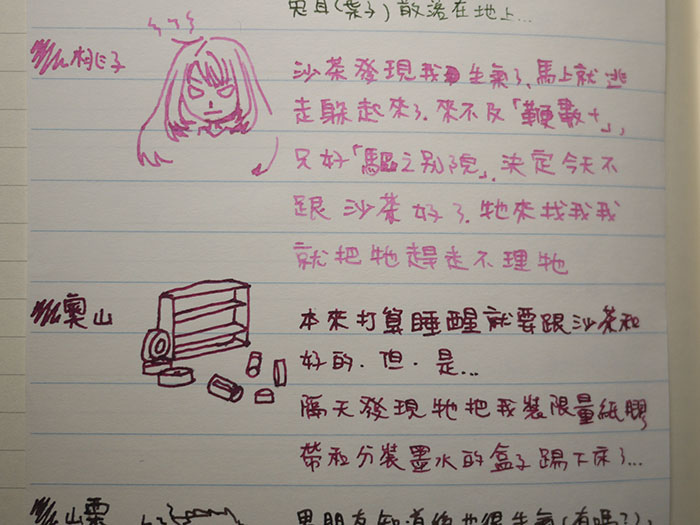 兔耳(葉子)散落在地上...
桃子
沙茶發現我生氣了,馬上就逃
走躲起來了.來不及「鞭數十」,
只好「驅之別院」.決定今天不
跟沙茶好了.牠來找我我
就把牠趕走不理牠
奧山
本來打算睡醒就要跟沙茶和
好的.但.是...
隔天發現牠把我裝限量紙膠
帶和分裝墨水的盒子踢下床了...
山栗
男朋友知道後也很生氣(有嗎?).